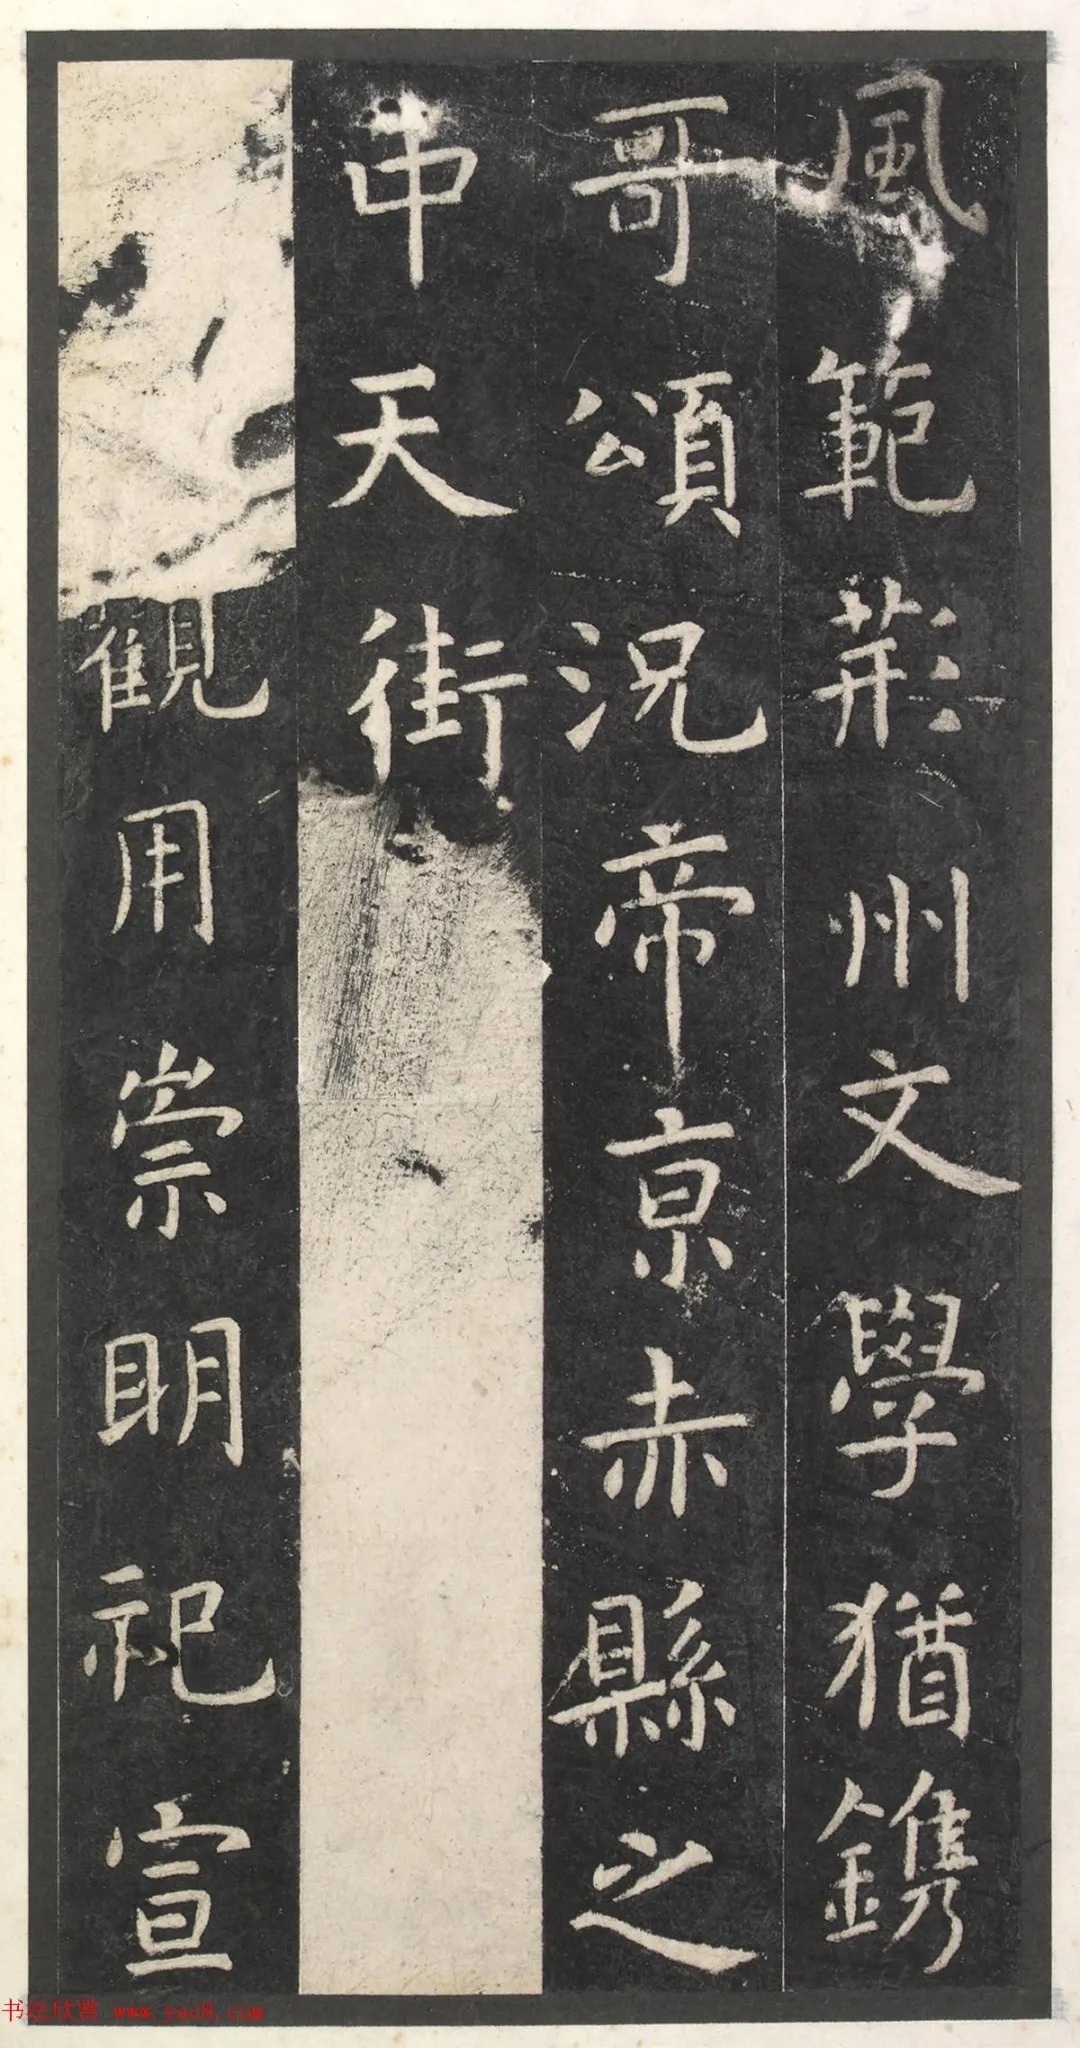 風範荊州文學猶鐫
哥頌況帝亰赤縣之
中天街
觀用崇眀祀宣
书法欣赏 www.yac8.com